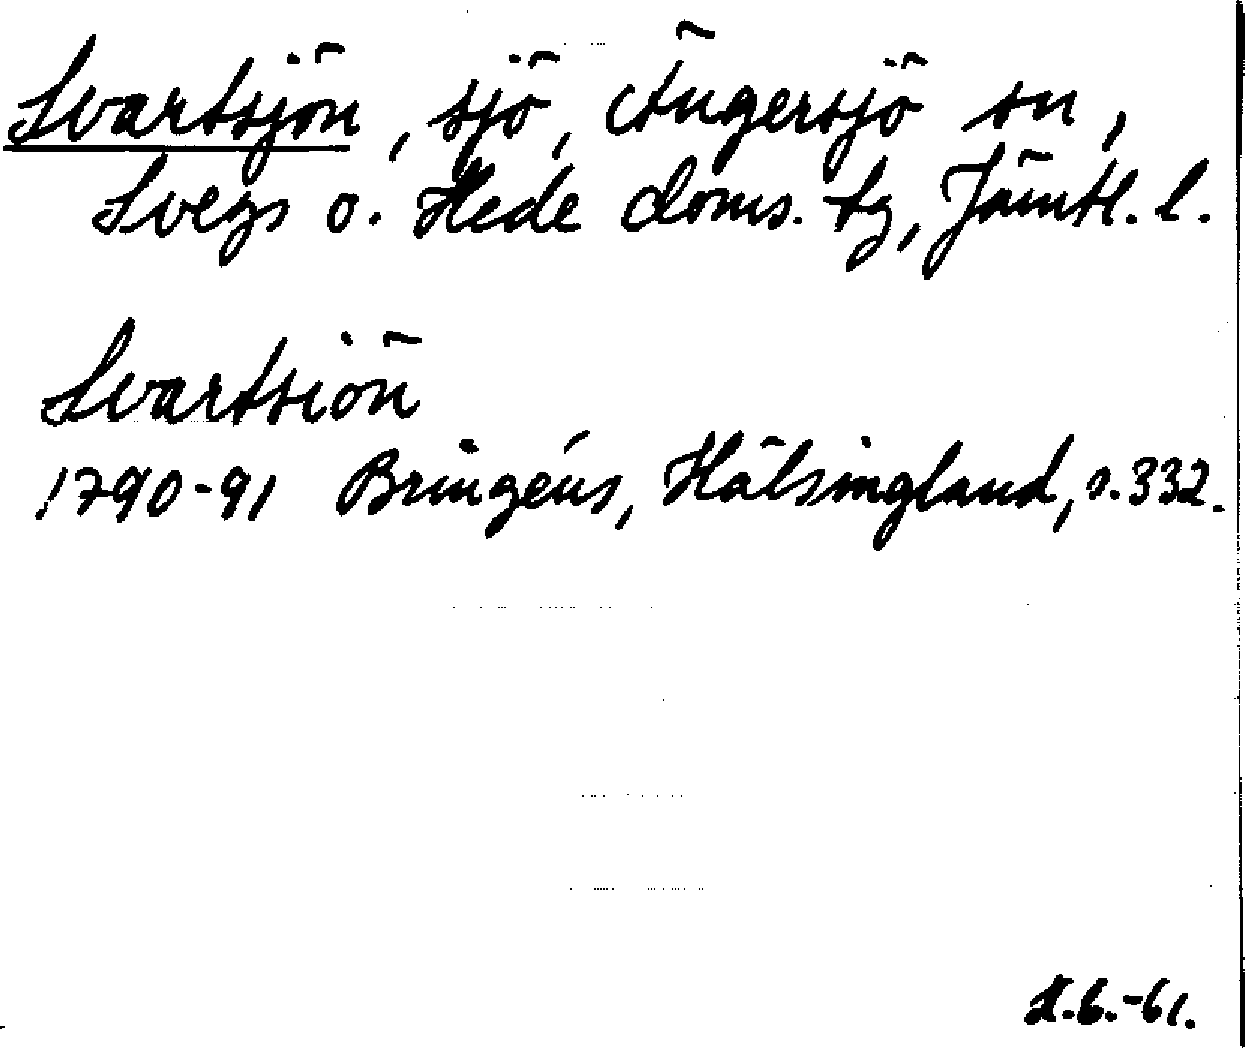 Svartsjön, sjö, Ängersjö sn,
Svegs o. Hede doms. tg, Jämtl. l.
Svartsiön
1790-91 Bringéus, Hälsingland, s. 332.
H.G.-61.